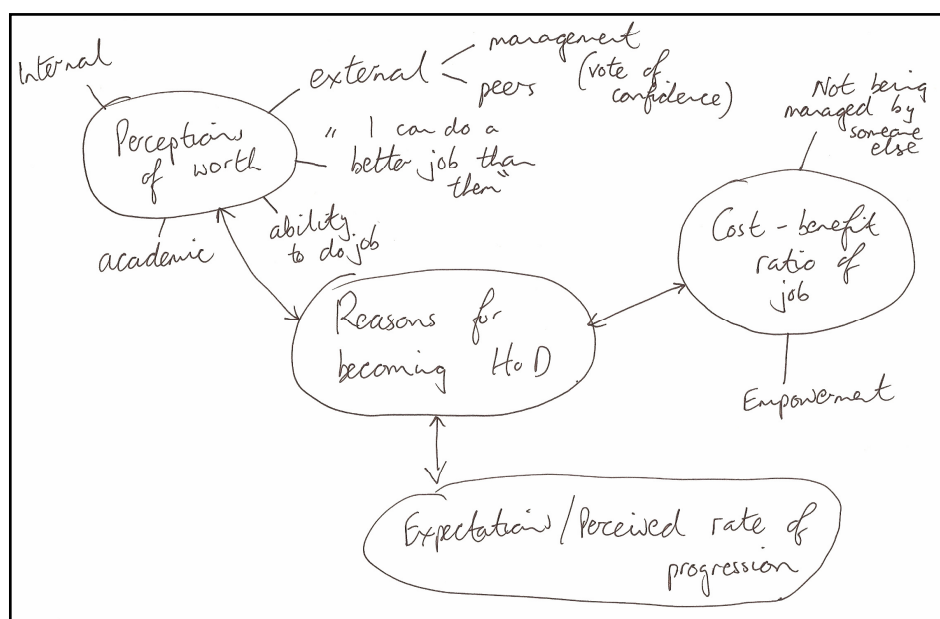 Internal
external
management
peers
(vote of
confidence)
Perceptions
of worth
" I can do a
better job than
them"
academic
ability
to do job
Not being
managed by
someone
else
Cost - benefit
ratio of
job
Empowerment
Reasons for
becoming HoD
Expectations/Perceived rate of
progression